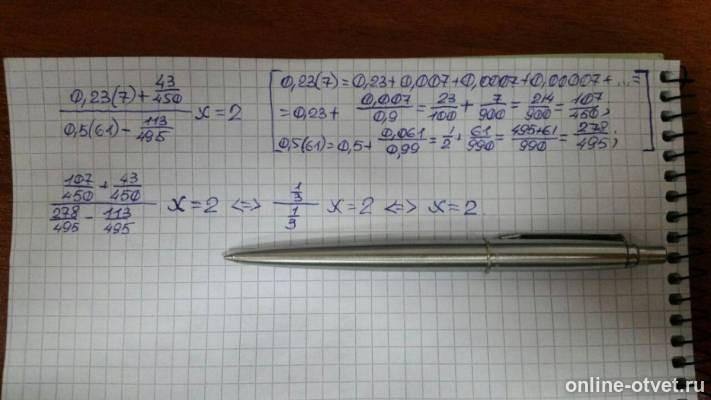 (0,23(7) + 43/450) / (0,5(61) − 113/495) x = 2
[0,23(7) = 0,23 + 0,007 + 0,0007 + 0,00007 + ... =
= 0,23 + 0,007/0,9 = 23/100 + 7/900 = 214/900 = 107/450;
0,5(61) = 0,5 + 0,061/0,99 = 1/2 + 61/990 = 495+61/990 = 278/495;]
(107/450 + 43/450) / (278/495 − 113/495) x = 2 <=> (1/3) / (1/3) x = 2 <=> x = 2
online-otvet.ru